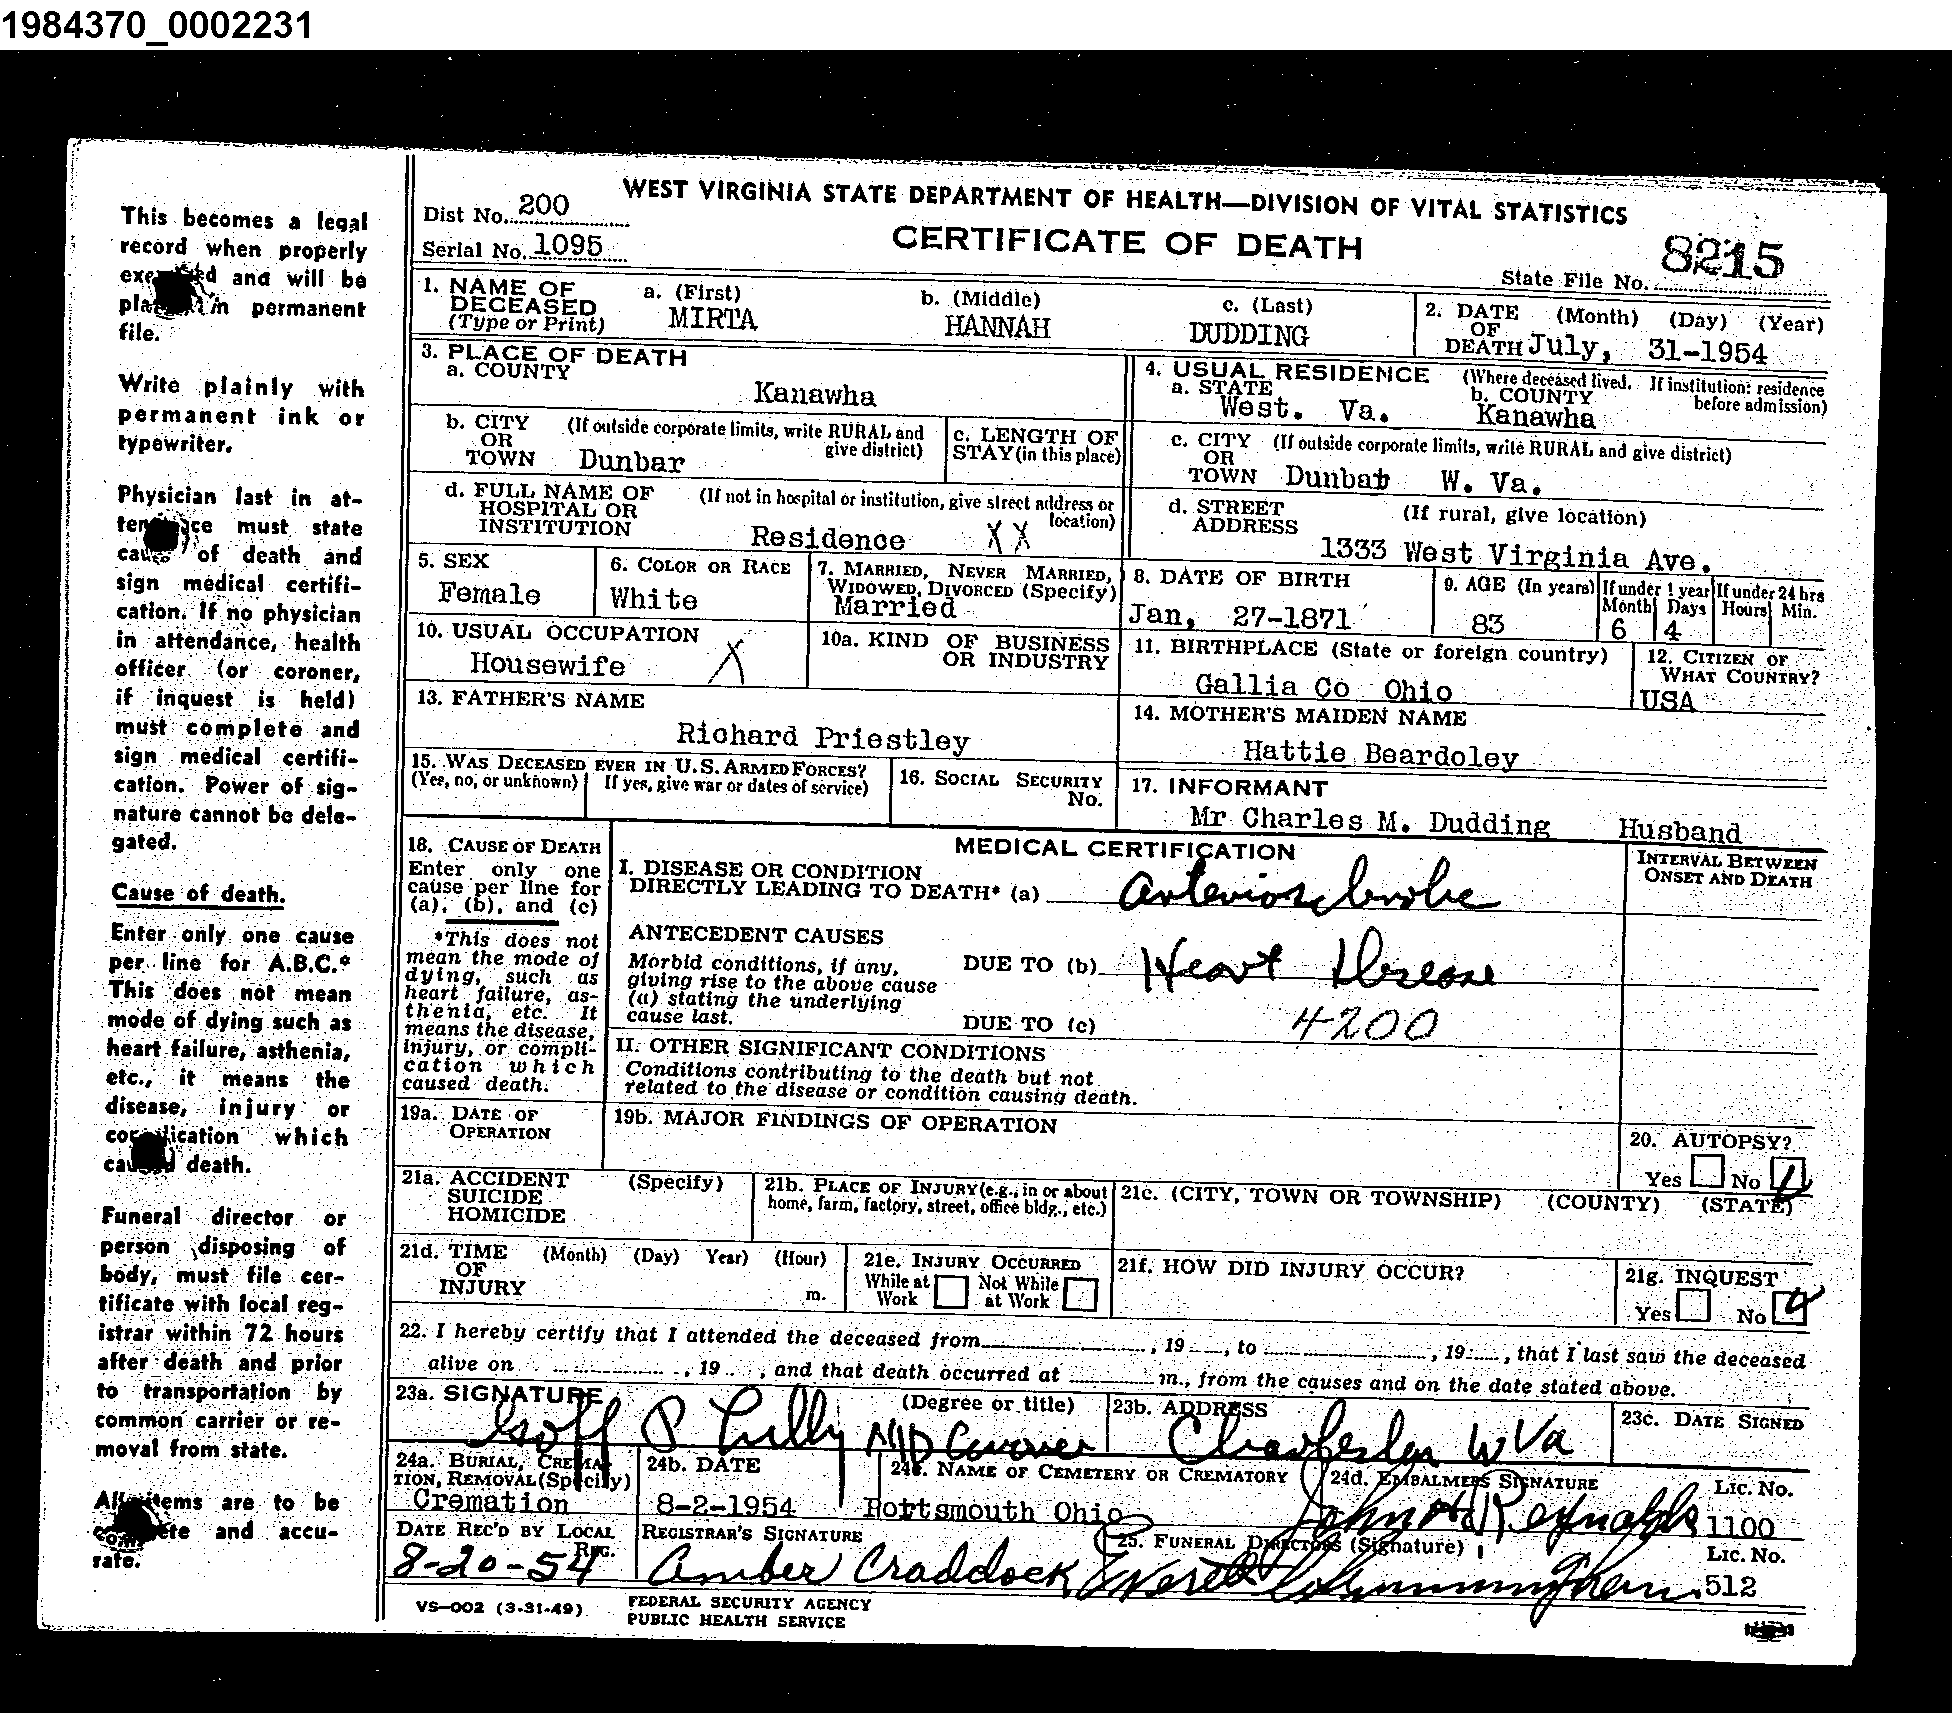 1984370_0002231
This becomes a legal
record when properly
and will be
in permanent
file.
Write plainly with
permanent ink or
typewriter.
Physician last in at-
must state
of death and
sign medical certifi-
cation. If no physician
in attendance, health
officer (or coroner,
if inquest is held)
must complete and
sign medical certifi-
cation. Power of sig-
nature cannot be dele-
gated.
Cause of death.
Enter only one cause
per line for A.B.C.*
This does not mean
mode of dying such as
heart failure, asthenia,
etc., it means the
disease, injury or
which
death.
Funeral director or
person disposing of
body, must file cer-
tificate with local reg-
istrar within 72 hours
after death and prior
to transportation by
common carrier or re-
moval from state.
items are to be
and accu-
rate.
WEST VIRGINIA STATE DEPARTMENT OF HEALTH—DIVISION OF VITAL STATISTICS
Dist No. 200
Serial No. 1095
CERTIFICATE OF DEATH
State File No. 8215
1. NAME OF DECEASED (Type or Print) a. (First) MIRTA b. (Middle) HANNAH c. (Last) DUDDING
2. DATE OF DEATH (Month) (Day) (Year) July, 31-1954
3. PLACE OF DEATH
a. COUNTY Kanawha
4. USUAL RESIDENCE (Where deceased lived. If institution: residence before admission)
a. STATE West. Va. b. COUNTY Kanawha
b. CITY OR TOWN (If outside corporate limits, write RURAL and give district) Dunbar
c. LENGTH OF STAY (in this place)
c. CITY OR TOWN (If outside corporate limits, write RURAL and give district) Dunbat W. Va.
d. FULL NAME OF HOSPITAL OR INSTITUTION (If not in hospital or institution, give street address or location) Residence XX
d. STREET ADDRESS (If rural, give location) 1333 West Virginia Ave.
5. SEX Female
6. COLOR OR RACE White
7. MARRIED, NEVER MARRIED, WIDOWED, DIVORCED (Specify) Married
8. DATE OF BIRTH Jan, 27-1871
9. AGE (In years) 83 If under 1 year Month 6 Days 4 If under 24 hrs Hours Min.
10. USUAL OCCUPATION Housewife X
10a. KIND OF BUSINESS OR INDUSTRY
11. BIRTHPLACE (State or foreign country) Gallia Co Ohio
12. CITIZEN OF WHAT COUNTRY? USA
13. FATHER'S NAME Richard Priestley
14. MOTHER'S MAIDEN NAME Hattie Beardoley
15. WAS DECEASED EVER IN U.S. ARMED FORCES? (Yes, no, or unknown) If yes, give war or dates of service)
16. SOCIAL SECURITY No.
17. INFORMANT Mr Charles M. Dudding Husband
18. CAUSE OF DEATH
Enter only one
cause per line for
(a), (b), and (c)
*This does not
mean the mode of
dying, such as
heart failure, as-
thenia, etc. It
means the disease,
injury, or compli-
cation which
caused death.
MEDICAL CERTIFICATION
INTERVAL BETWEEN ONSET AND DEATH
I. DISEASE OR CONDITION
DIRECTLY LEADING TO DEATH* (a) Arteriosclerotic
ANTECEDENT CAUSES
Morbid conditions, if any,
giving rise to the above cause
(a) stating the underlying
cause last.
DUE TO (b) Heart Disease
DUE TO (c) 4200
II. OTHER SIGNIFICANT CONDITIONS
Conditions contributing to the death but not
related to the disease or condition causing death.
19a. DATE OF OPERATION
19b. MAJOR FINDINGS OF OPERATION
20. AUTOPSY?
Yes No
21a. ACCIDENT SUICIDE HOMICIDE (Specify)
21b. PLACE OF INJURY (e.g., in or about home, farm, factory, street, office bldg., etc.)
21c. (CITY, TOWN OR TOWNSHIP) (COUNTY) (STATE)
21d. TIME OF INJURY (Month) (Day) Year) (Hour) m.
21e. INJURY OCCURRED
While at Work Not While at Work
21f. HOW DID INJURY OCCUR?
21g. INQUEST
Yes No
22. I hereby certify that I attended the deceased from , 19 , to , 19 , that I last saw the deceased
alive on , 19 , and that death occurred at m., from the causes and on the date stated above.
23a. SIGNATURE Goff P Lilly MD Coroner (Degree or title)
23b. ADDRESS Charleston W Va
23c. DATE SIGNED
24a. BURIAL, CREMATION, REMOVAL (Specify) Cremation
24b. DATE 8-2-1954
24c. NAME OF CEMETERY OR CREMATORY Portsmouth Ohio
24d. EMBALMERS SIGNATURE John H Reynolds Lic. No. 1100
DATE REC'D BY LOCAL REG. 8-20-54
REGISTRAR'S SIGNATURE Amber Craddock
25. FUNERAL DIRECTORS (Signature) Cunningham Lic. No. 512
VS-002 (3-31-49)
FEDERAL SECURITY AGENCY
PUBLIC HEALTH SERVICE